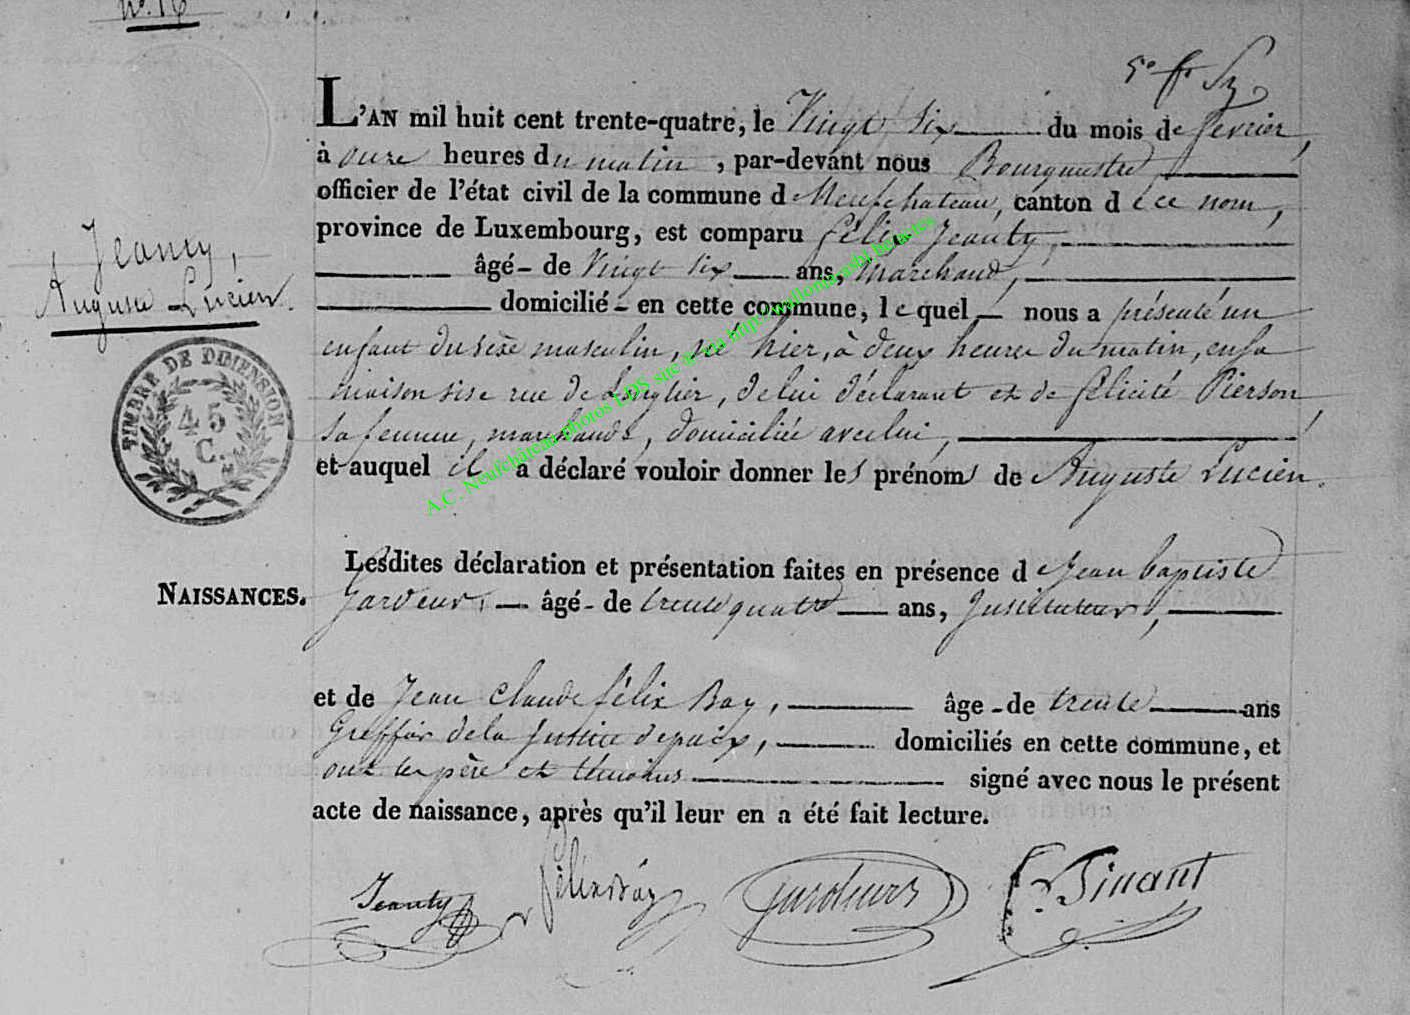 no. 16
L'AN mil huit cent trente-quatre, le Vingt Six du mois de fevrier,
à onze heures du matin, par-devant nous Bourgmestre
officier de l'état civil de la commune de Neufchateau, canton de ce nom,
province de Luxembourg, est comparu félix Jeanty,
âgé de Vingt Six ans, Marchand,
domicilié en cette commune, lequel nous a présenté un
enfant du sexe masculin, né hier, à deux heures du matin, en sa
maison sise rue de Longlier, de lui déclarant et de félicité Pierson,
sa femme, marchande, domiciliée avec lui,
et auquel il a déclaré vouloir donner les prénoms de Auguste Lucien.
Jeanty,
Auguste Lucien.
TIMBRE DE DIMENSION
45
C.
A.C. Neufchâteau photos LDS site
NAISSANCES.
Lesdites déclaration et présentation faites en présence de Jean baptiste
âgé de trente quatre ans, Instituteur,
et de Jean Claude félix Bay, âge de trente ans
Greffier de la Justice de paix, domiciliés en cette commune, et
ont les père et témoins signé avec nous le présent
acte de naissance, après qu'il leur en a été fait lecture.
Jeanty félix Bay Pinant